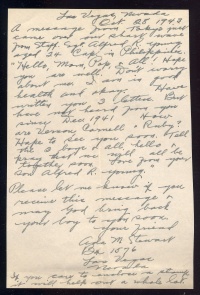 Las Vegas, Nevada
Oct 25, 1943
A message from Tokyo just
came over our short wave
from Staff Sgt Alfred R. Young
age 20. P.O.W. in Philippines
"Hello, Mom, Pop & All". Hope
you are well. Don't worry
about me. I am in good
health and okay. Have
written you 2 letters. But
have not heard from you
since Dec 1941. How
are Vernon, Carnell & Ruby?
Hope to see you soon. Tell
the 3 boys & all, hello &
pray that we will all be
together soon. Love from your
Son Alfred R. Young.
Please let me know if you
receive this message &
may God bring back
your boy to you soon.
your friend
M. Stewart
Box 1576
Las Vegas
Nevada
If you care to enclose a stamp
it will help out a whole lot